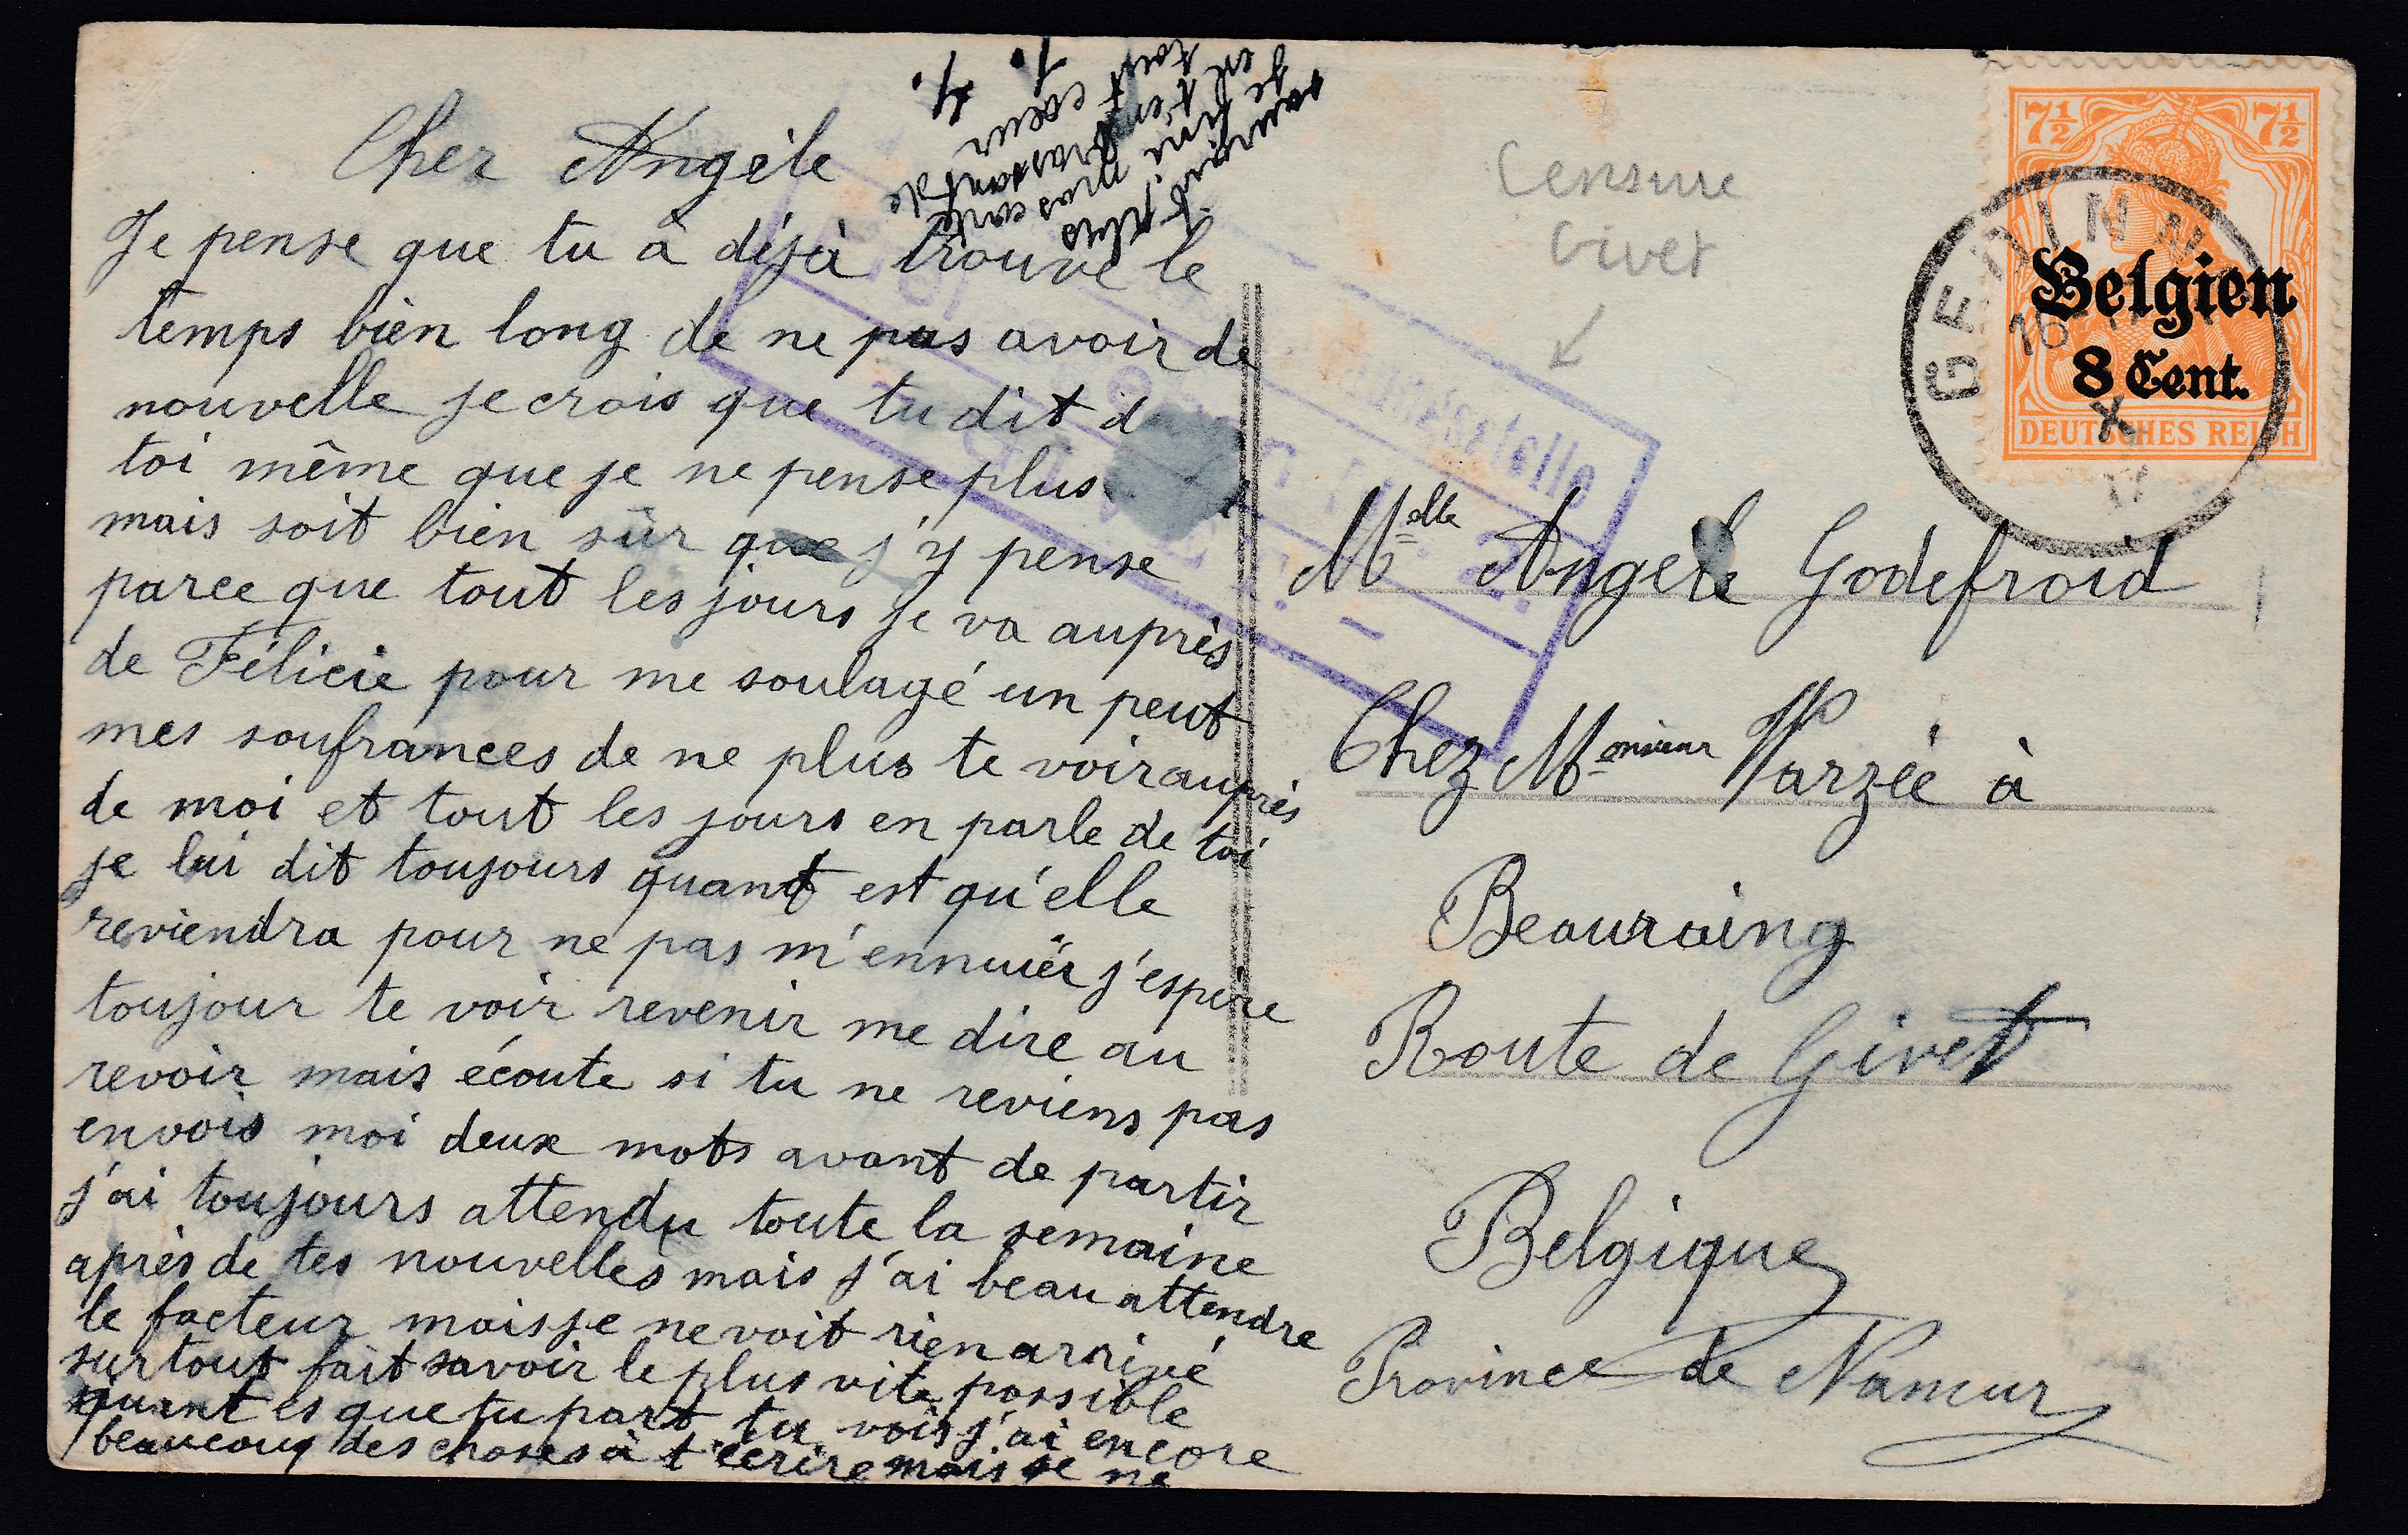 Cher Angèle
Je pense que tu à déjà trouvé le
temps bien long de ne pas avoir de
nouvelle je crois que tu dit d
toi même que je ne pense plus
mais soit bien sûr que j'y pense
parce que tout les jours je va auprès
de Félicie pour me soulagé un peut
mes soufrances de ne plus te voir auprès
de moi et tout les jours en parle de toi
je lui dit toujours quant est qu'elle
reviendra pour ne pas m'ennuièr j'espère
toujour te voir revenir me dire au
revoir mais écoute si tu ne reviens pas
envois moi deux mots avant de partir
j'ai toujours attendu toute la semaine
après de tes nouvelles mais j'ai beau attendre
le facteur mais je ne voit rien arrivé
surtout fait savoir le plus vite possible
quant es que tu part tu vois j'ai encore
beaucoup des choses à t'écrire mais je ne
plus
je fini ma carte
en t'embrassant de
tout cœur
Censure
Givet
7½ 7½
Belgien
8 Cent.
DEUTSCHES REICH
GEDINNE
16 X
Melle Angele Godefroid
Chez Monsieur Warzée à
Beauraing
Route de Givet
Belgique
Province de Namur